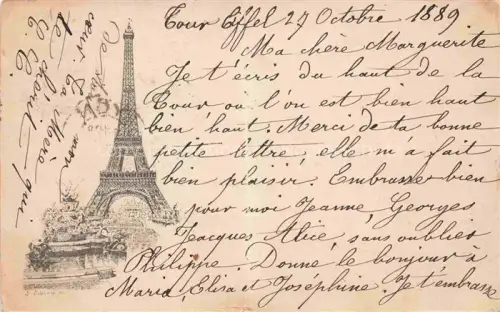 Tour Eiffel 27 Octobre 1889
Ma chère Marguerite
Je t'écris du haut de la
Tour où l'on est bien haut
bien haut. Merci de ta bonne
petite lettre, elle m'a fait
bien plaisir. Embrasse bien
pour moi Jeanne, Georges
Jacques Alice, sans oublier
Philippe. Donne le bonjour à
Maria, Elisa et Joséphine. Je t'embrasse
de
mon
cœur Ta Mère qui
te